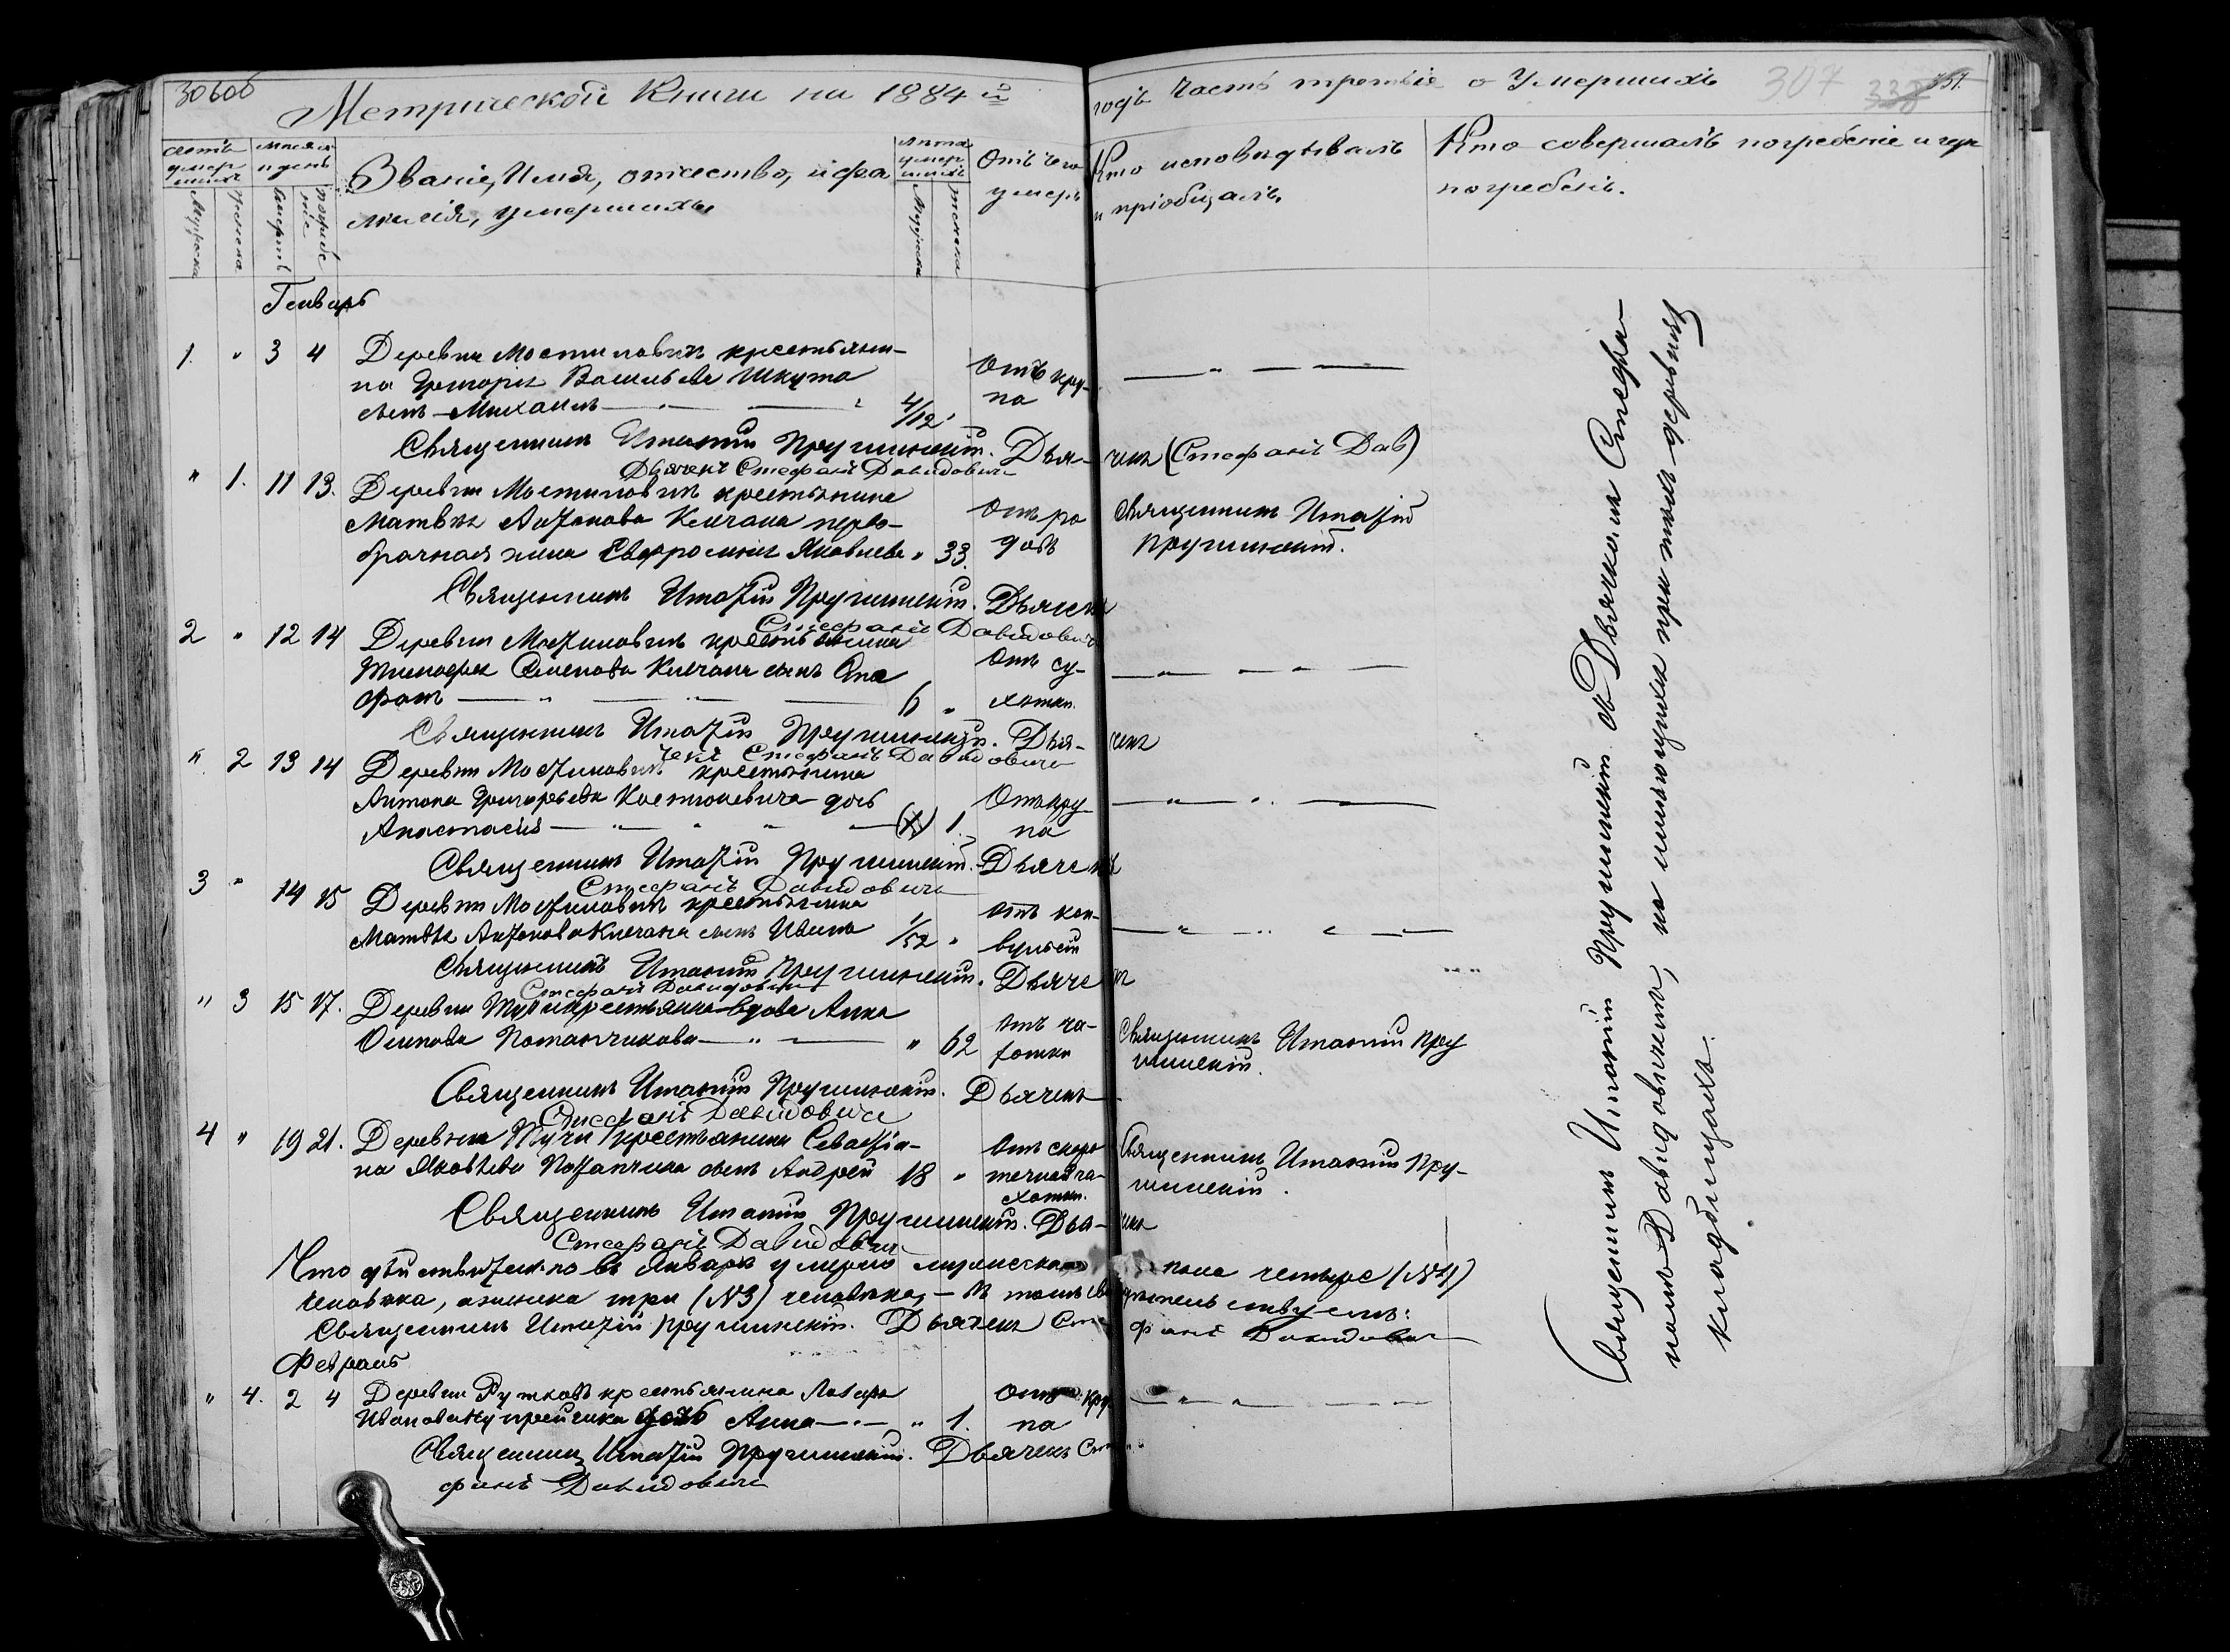 306об
Метрической Книги на 1884 й
годъ Часть третія о Умершихъ
307 338
Счетъ умершихъ
Мужеска
Женска
Мѣсяцъ и день
Смерть
Погребеніе
Званіе, Имя, отчество, и фа
милія, умершихъ,
Лѣта умершихъ
Мужеска
женска
Отъ чего
умеръ
Кто исповѣдывалъ
и пріобщалъ,
Кто совершалъ погребеніе и гдѣ
погребенъ.
Генварь
1. " 3 4 Деревни Мостиловичъ крестьяни-
на Григорія Васильева Шкута
сынъ Михаилъ — " — 4/12 " Отъ кру-
па
Священникъ Игнатій Прушинскій. Дья-чекъ (Стефанъ Дав)
Дьячекъ Стефанъ Давидовичъ
" 1. 11 13. Деревни Мостиловичъ крестьянина
Матвѣя Антонова Клечана перво-
брачная жена Евфросинія Яковлева " 33. Отъ ро
довъ
Священникъ Игнатій
Прушинскій.
Священникъ Игнатій Прушинскій. Дьячекъ
Стефанъ Давидовичъ
2 " 12 14 Деревни Мостиловичъ крестьянина
Тимофея Семенова Клечана сынъ Она
фрій — " — 6 " Отъ су-
хотки.
Священникъ Игнатій Прушинскій. Дья-чекъ
Стефанъ Давидовичъ
" 2 13 14 Деревни Мостиловичъ крестьянина
Антона Григорьева Костюкевича дочь
Анастасія — " — 1. Отъ кру
па
Священникъ Игнатій Прушинскій. Дьячекъ
Стефанъ Давидовичъ
3 " 14 15 Деревни Мостиловичъ крестьянина
Матвѣя Антонова Клечана сынъ Иванъ 1/52 " Отъ кон-
вульсій
Священникъ Игнатій Прушинскій. Дьячекъ
Стефанъ Давидовичъ
" 3 15 17. Деревни Тучи крестьянка вдова Анна
Осипова Потапчикова — " — " 62 Отъ ча-
хотки
Священникъ Игнатій Пру
шинскій.
Священникъ Игнатій Прушинскій. Дьячекъ
Стефанъ Давидовичъ
4 " 19 21. Деревни Тучи крестьянина Севастія-
на Яковлева Потапчика сынъ Андрей 18 " Отъ скоро
течной ча-
хотки.
Священникъ Игнатій Пру-
шинскій.
Священникъ Игнатій Прушинскій. Дья-чекъ
Стефанъ Давидовичъ
Что дѣйствительно въ Январѣ умерло мужеска пола четыре (№4)
человѣка, а женска три (№3) человѣка, — въ томъ свидѣтельствуемъ:
Священникъ Игнатій Прушинскій. Дьячекъ Стефанъ Давидовичъ
Февраль
" 4. 2 4 Деревни Рутковъ крестьянина Лазаря
Иванова дочь Анна — " — " 1. Отъ кру
па
Священникъ Игнатій Прушинскій. Дьячекъ Сте
фанъ Давидовичъ
Священникъ Игнатій Прушинскій съ Дьячкомъ Стефа-
номъ Давидовичемъ, на имѣющихся при техъ деревняхъ
кладбищахъ.